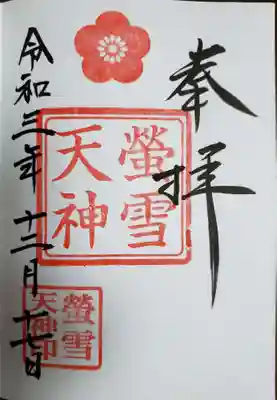 奉拝
螢雪
天神
令和三年十二月十七日
螢雪
天神印